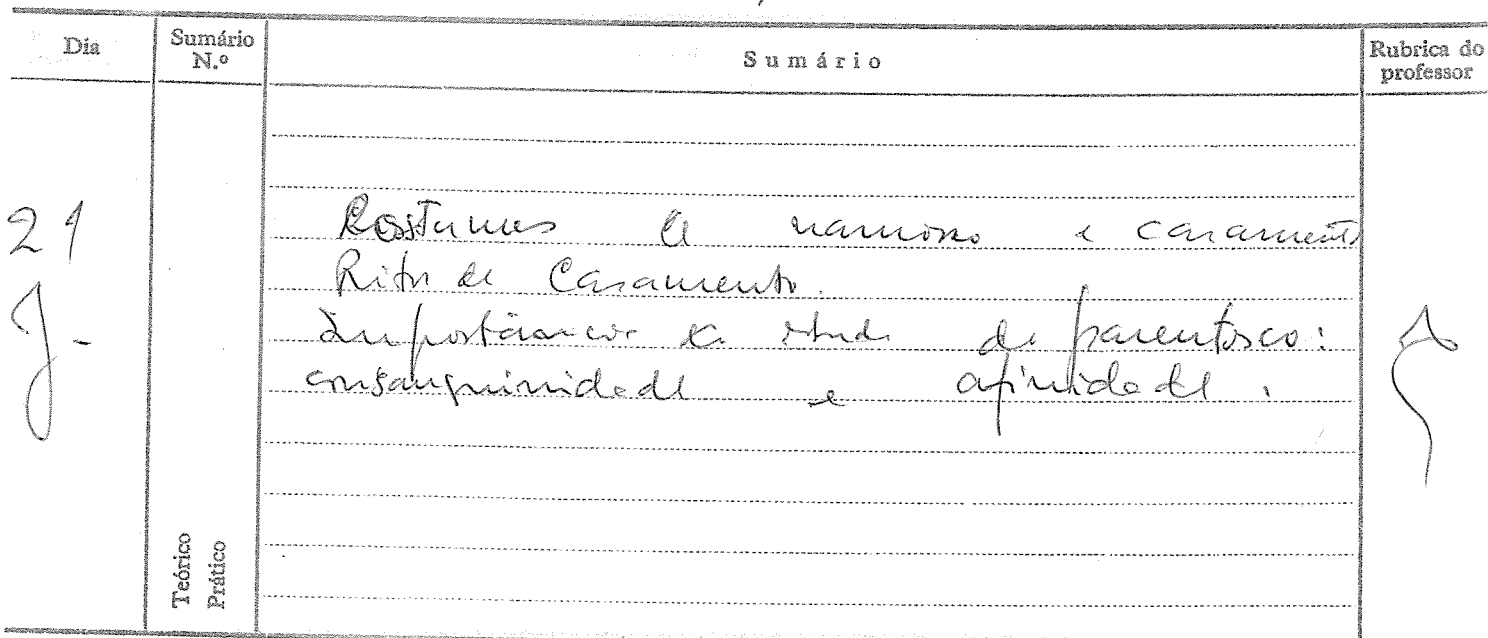 Dia Sumário N.º Sumário Rubrica do professor
21 Costumes de namoro e casamento
Ritos de Casamento.
J- Importância do estudo de parentesco:
consanguinidade e afinidade.
Teórico
Prático